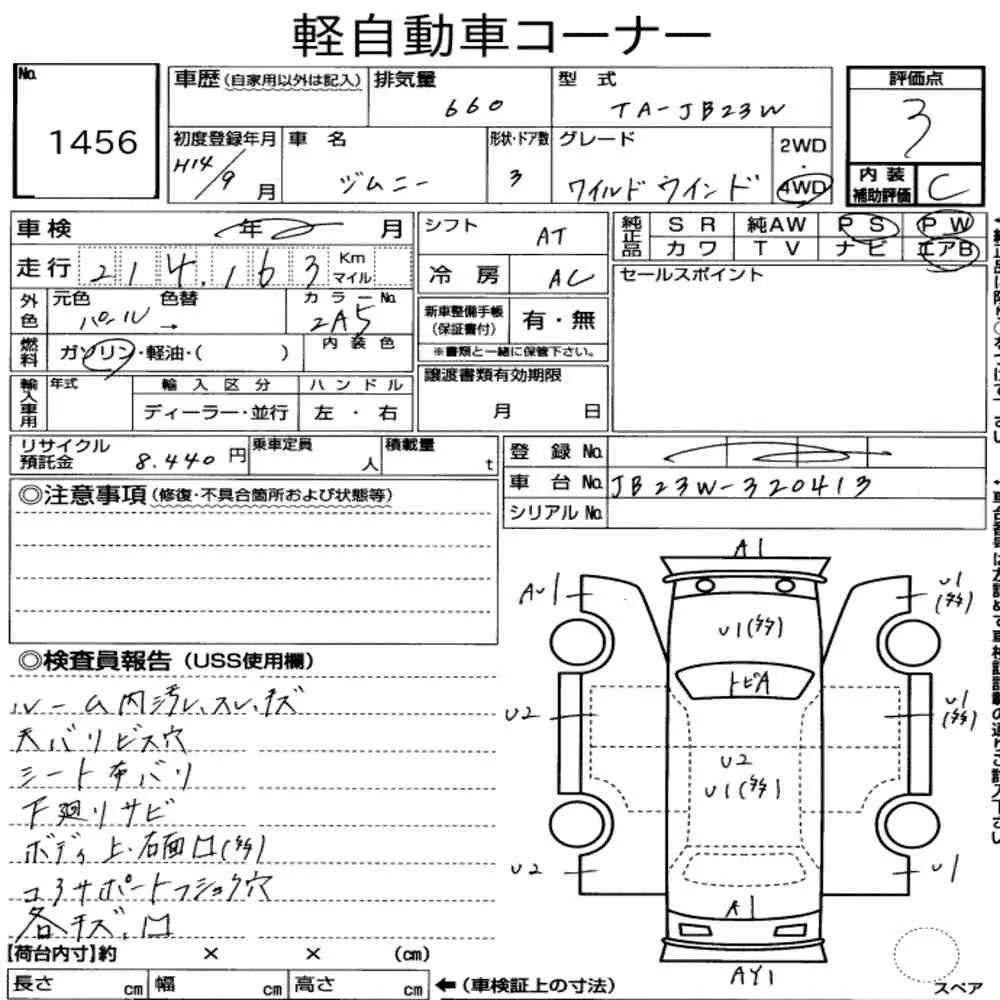 軽自動車コーナー
No.
1456
車歴(自家用以外は記入)
排気量
660
型 式
TA-JB23W
評価点
3
初度登録年月
H14/9 月
車 名
ジムニー
形状・ドア数
3
グレード
ワイルド ウインド
2WD
・
4WD
内 装
補助評価
C
車検 年 月
シフト
AT
純正品
SR 純AW PS PW
カワ TV ナビ エアB
走行 214,163 Km マイル
冷 房
AC
セールスポイント
外色
元色 色替
パール →
カラーNo.
2A5
新車整備手帳
(保証書付)
有・無
※書類と一緒に保管下さい。
燃料
ガソリン・軽油・( )
内 装 色
輸入車用
年式
輸 入 区 分
ハ ン ド ル
ディーラー・並行
左 ・ 右
譲渡書類有効期限
月 日
リサイクル
預託金
8.440 円
乗車定員
人
積載量
t
登 録 No.
車 台 No. JB23W-320413
シリアル No.
◎注意事項(修復・不具合箇所および状態等)
◎検査員報告(USS使用欄)
ルーム内汚レ、スレ、キズ
天バリビス穴
シート布バリ
下廻リサビ
ボディ上・右面凹(多)
コアサポートプッシュ穴
各キズ、凹
A1
AU1
U1
(多)
U1(多)
トビA
U2
U1
(多)
U2
U1(多)
U2
U1
A1
AY1
スペア
【荷台内寸】約 × × (cm)
長さ cm 幅 cm 高さ cm
←(車検証上の寸法)